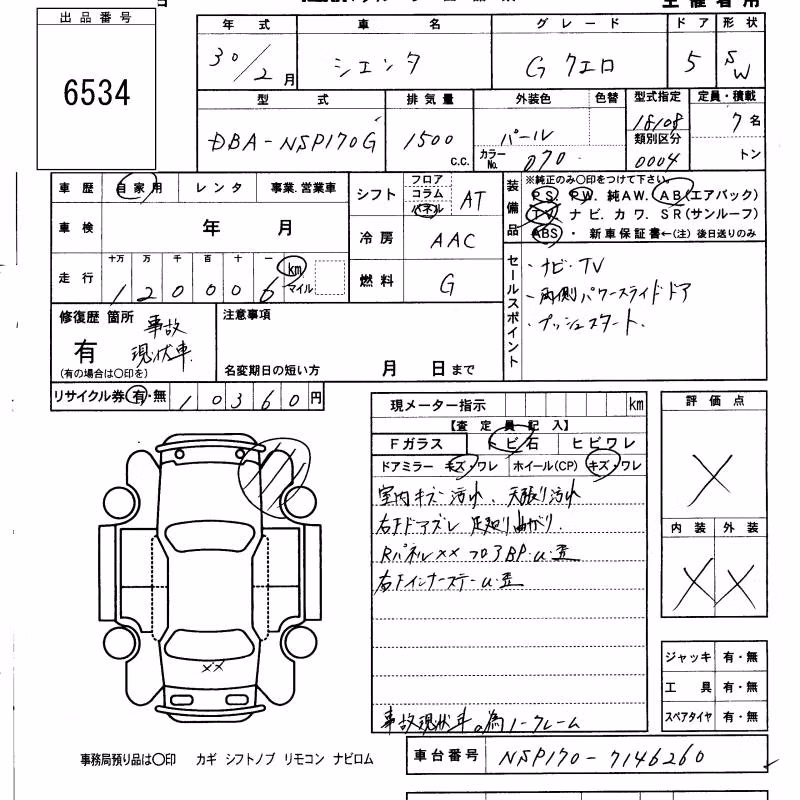 出品番号
6534
年式 車名 グレード ドア 形状
30/2月 シエンタ G クエロ 5 SW
型式 排気量 外装色 色替 型式指定 定員・積載
DBA-NSP170G 1500 c.c. パール 18108 7名
カラーNo. 070 類別区分 0004 トン
車歴 自家用 レンタ 事業.営業車
車検 年 月
走行 十万 万 千 百 十 一 km マイル
120006
シフト フロア コラム パネル AT
冷房 AAC
燃料 G
装備品 ※純正のみ○印をつけて下さい。
PS. PW. 純AW. AB(エアバック)
TV ナビ. カワ. SR(サンルーフ)
ABS ・ 新車保証書←(注)後日送りのみ
セールスポイント
・ナビ・TV
・両側パワースライドドア
・プッシュスタート.
修復歴 箇所 事故現状車.
有
(有の場合は○印を)
注意事項
名変期日の短い方 月 日まで
リサイクル券 有・無 10360円
現メーター指示 km
【査定員記入】
Fガラス トビ石 ヒビワレ
ドアミラー キズ・ワレ ホイール(CP) キズ・ワレ
室内キズ・汚れ、天張り汚れ
右Fドアズレ 足廻り曲がり.
Rパネル×× フロアBP.u.歪
右Fインナーステーu.歪
事故現状車の為ノークレーム
評価点
X
内装 外装
X X
ジャッキ 有・無
工具 有・無
スペアタイヤ 有・無
××
事務局預り品は○印 カギ シフトノブ リモコン ナビロム
車台番号 NSP170-7146260